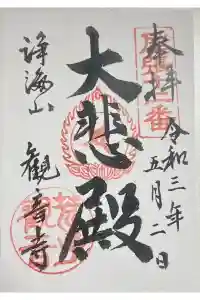 奉拝
令和三年
五月二日
大悲殿
海山
観音寺